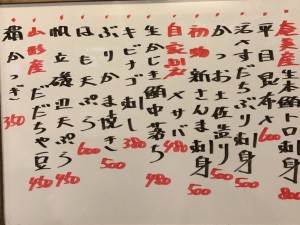 奄美産 生本鮪トロ刺身 800
平目昆布〆 600
活〆すだちぶり刺身 500
かつお土佐造り 500
初物 新さんま刺身 500
自家製 〆サバ 480
生かじき鮪中落ち 480
キビナゴ刺し 380
ぶりかま焼き 500
はも天ぷら 600
帆立磯辺天ぷら 450
山形産 だだちゃ豆 450
霜かつぎ 350